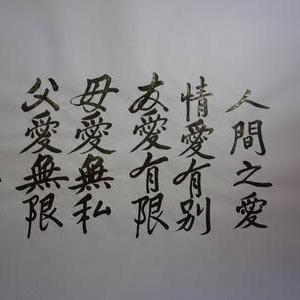 人間之愛
情愛有別
友愛有限
母愛無私
父愛無限